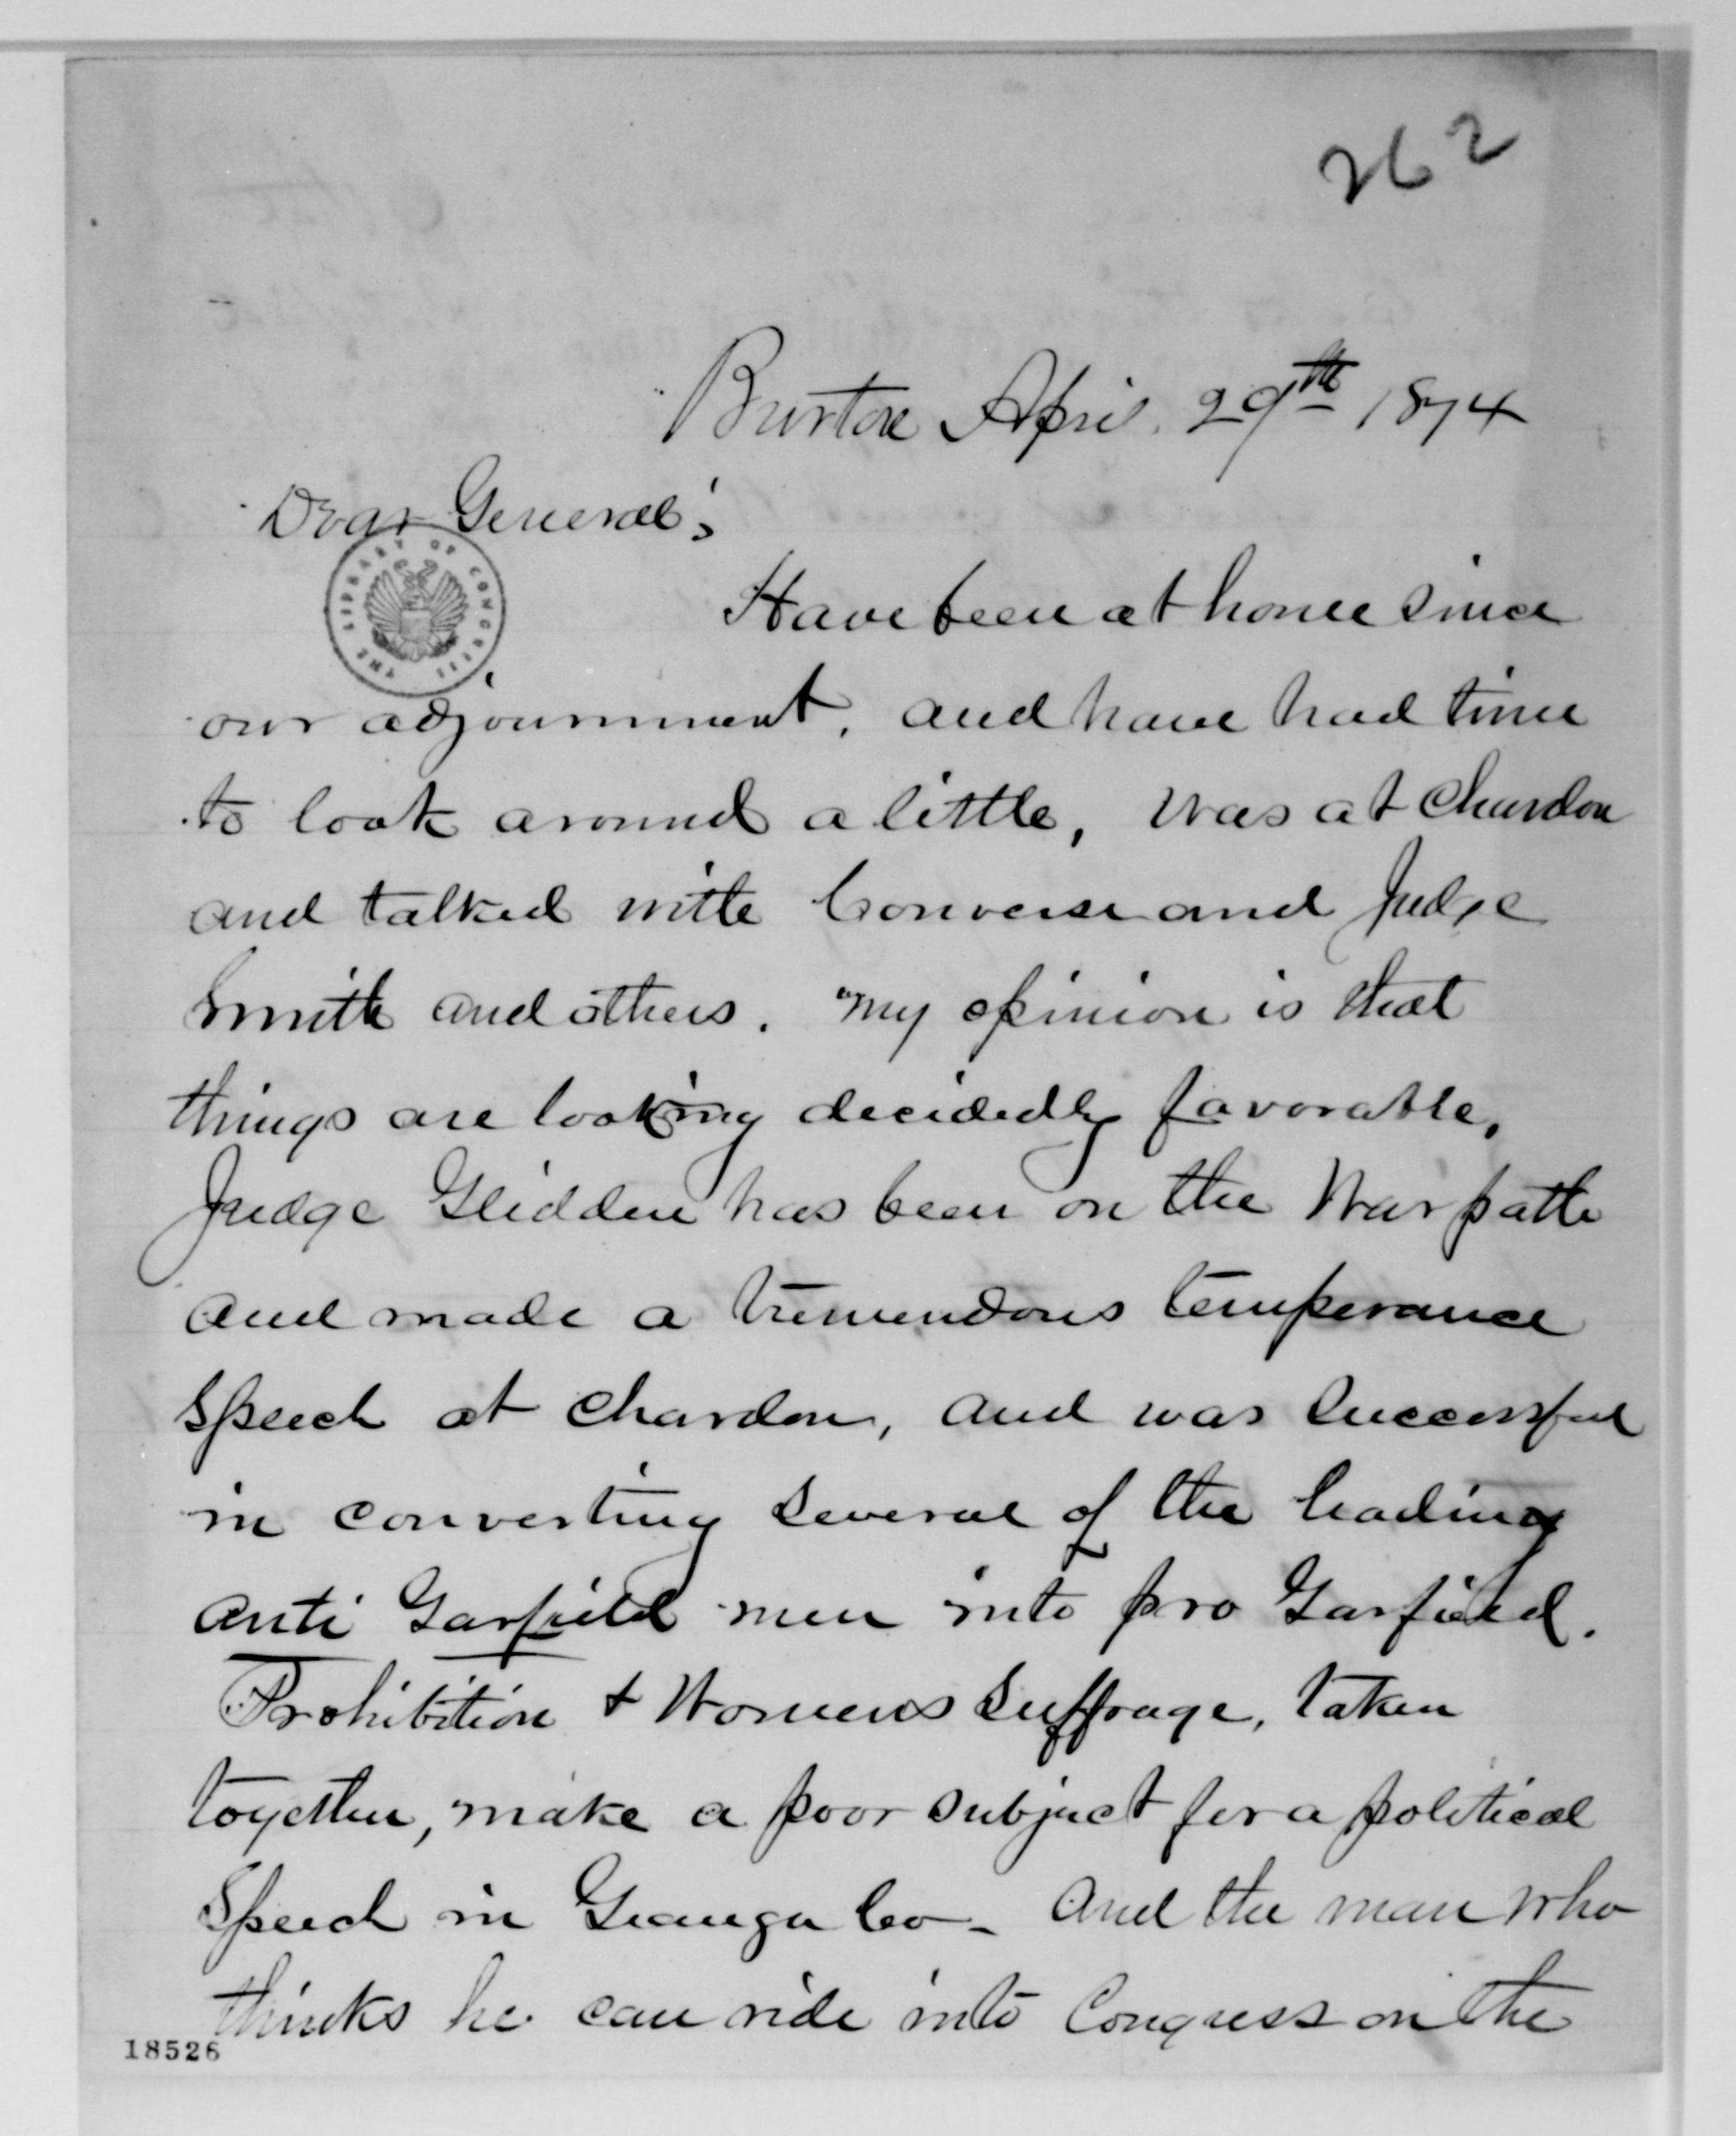 262
Burton April 29th 1874
Dear General;
THE LIBRARY OF CONGRESS
Have been at home since
our adjournment, and have had time
to look around a little, was at Chardon
and talked with Converse and Judge
Smith and others. My opinion is that
things are looking decidedly favorable,
Judge Glidden has been on the War path
and made a tremendous temperance
speech at Chardon, and was successful
in converting several of the leading
anti Garfield men into pro Garfield.
Prohibition & Womens Suffrage, taken
together, make a poor subject for a political
speech in Geauga Co - and the man who
thinks he can ride into Congress on the
18526